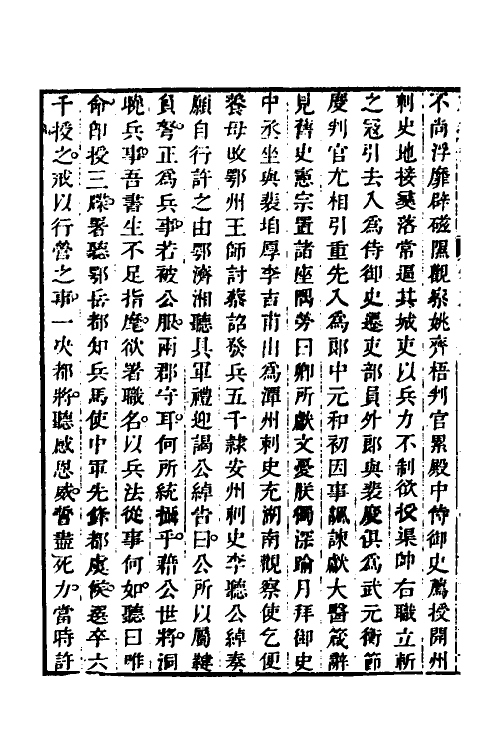 不尚浮靡辟磁隰觀察姚齊梧判官累殿中侍御史薦授開州
刺史地接夔落常逼其城吏以兵力不制欲授渠帥右職立斬
之冠引去入為侍御史遷吏部員外郎與裴度俱為武元衡節
度判官尤相引重先入為郎中元和初因事諷諫獻大醫箴辭
見舊史憲宗置諸座隅勞曰卿所獻文憂朕獨深踰月拜御史
中丞坐與裴垍厚李吉甫出為潭州刺史充湖南觀察使乞便
養母改鄂州王師討蔡詔發兵五千隸安州刺史李聽公綽奏
願自行許之由鄂濟湘聽具軍禮迎謁公綽告曰公所以屬鞬
負弩正為兵事若被公服兩郡守耳何所統攝乎藉公世將洞
曉兵事吾書生不足指麾欲署職名以兵法從事何如聽曰唯
命即授三牒署聽鄂岳都知兵馬使中軍先鋒都虞候選卒六
千授之戒以行營之事一決都將聽感恩威嘗盡死力當時許